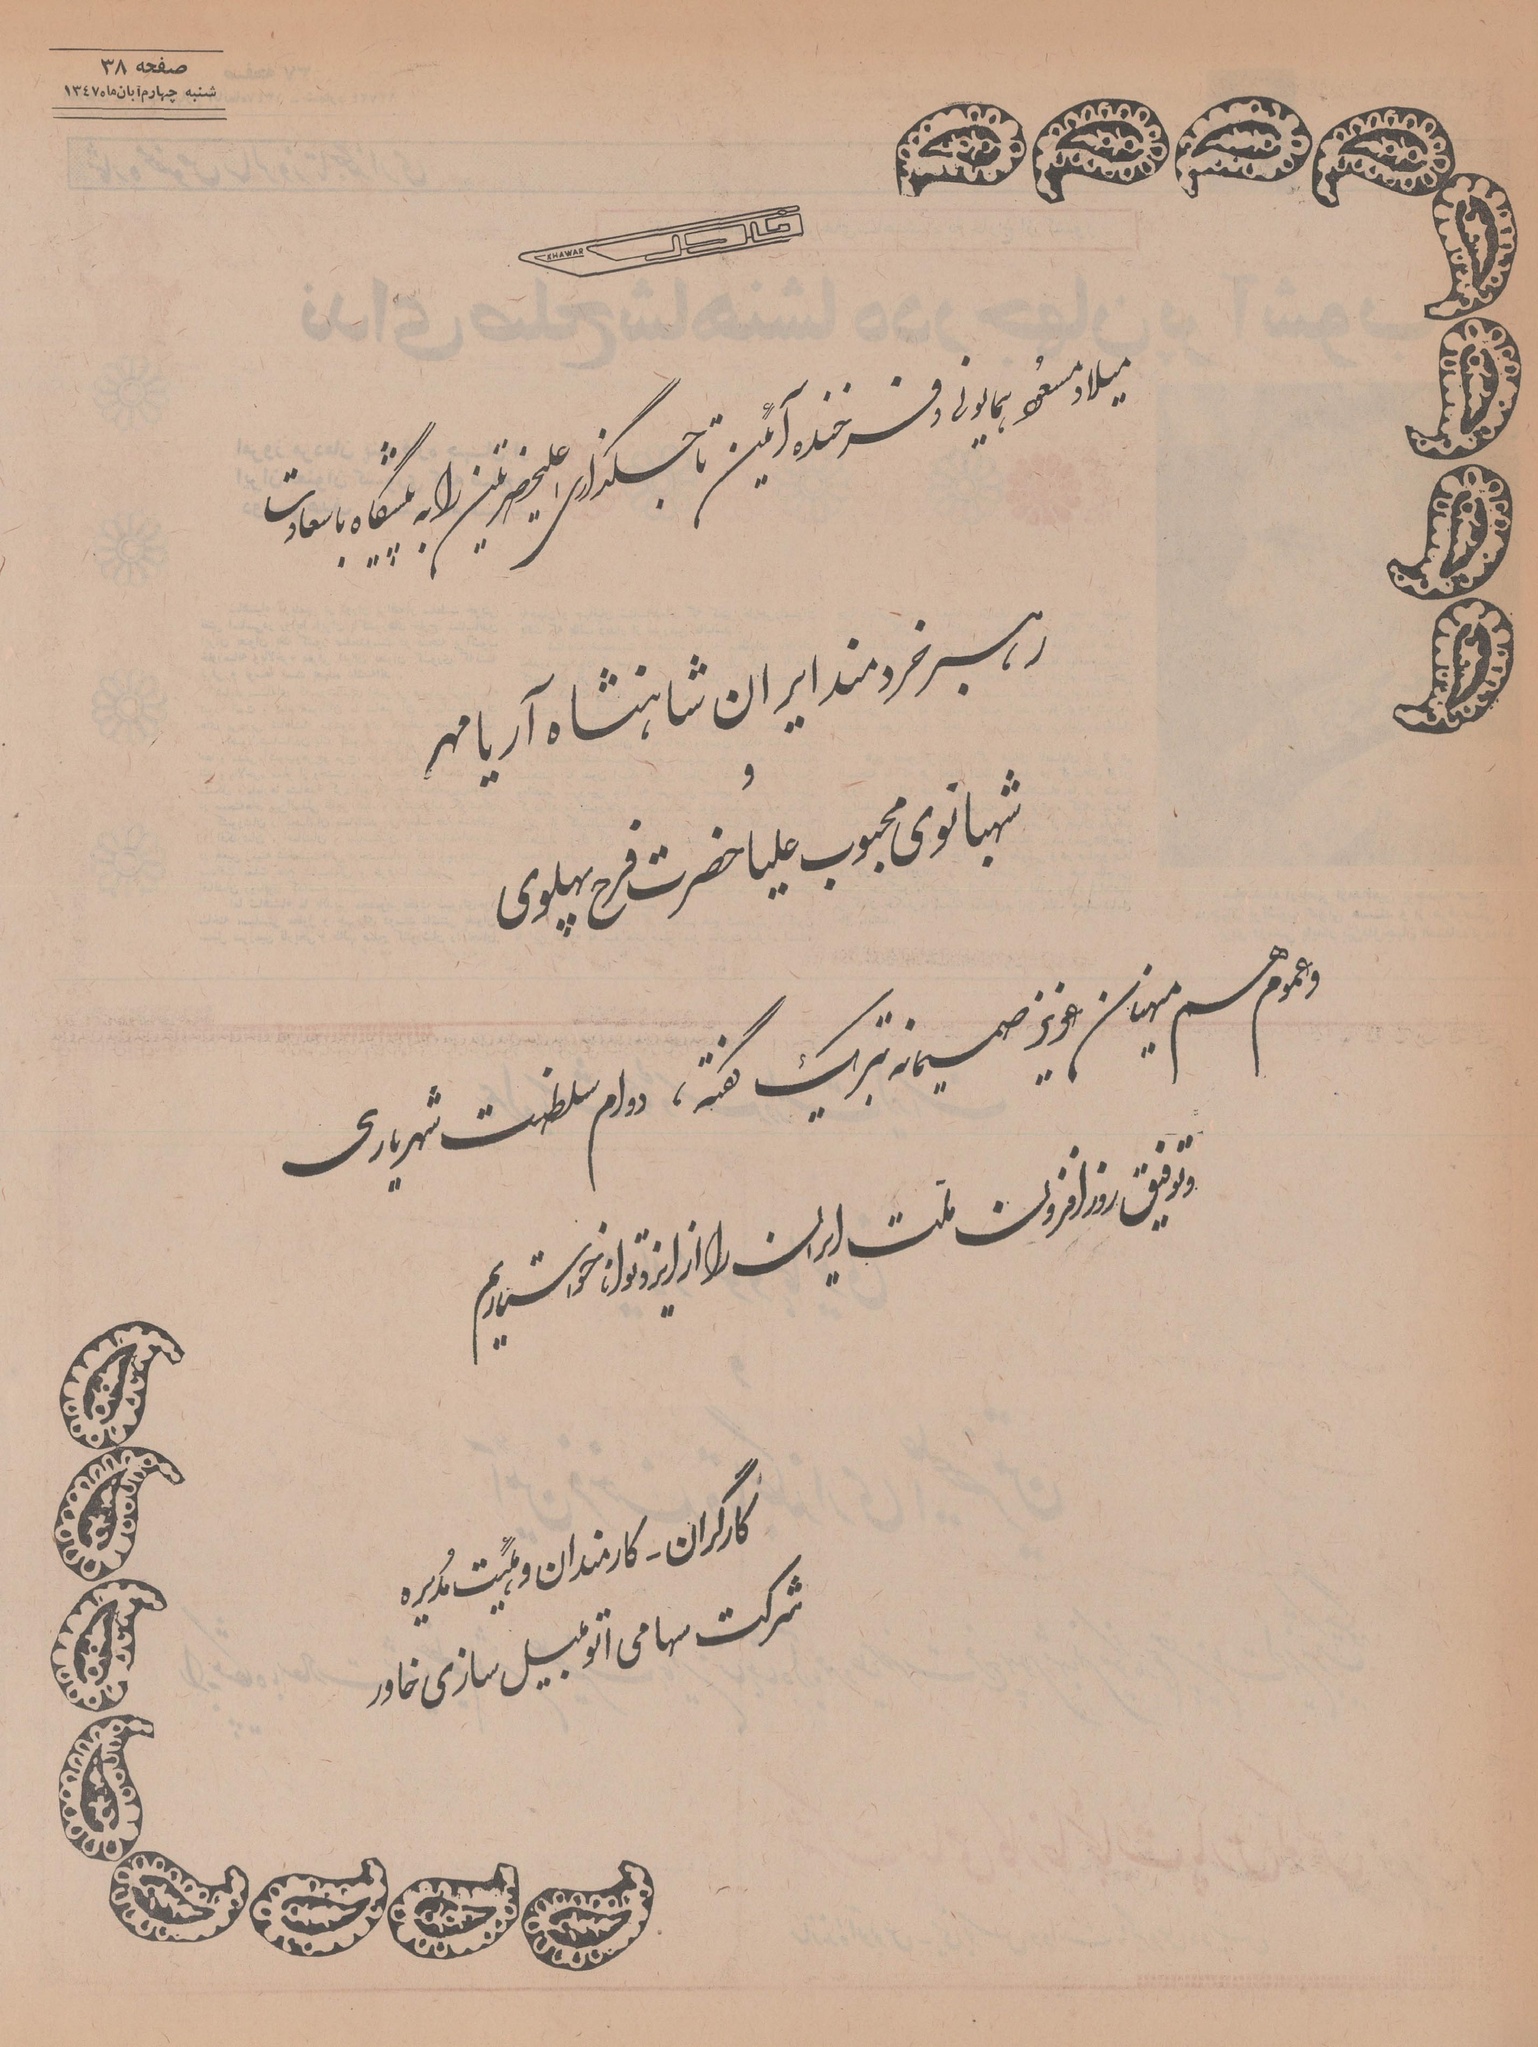 صفحه ۳۸
شنبه چهارم آبان ماه ۱۳۴۷
خاور
KHAWAR
میلاد مسعود همایونی و فرخنده آئین تاجگذاری اعلیحضرتین را به پیشگاه با سعادت
رهبر خردمند ایران شاهنشاه آریامهر
و
شهبانوی محبوب علیاحضرت فرح پهلوی
و عموم هم میهنان عزیز صمیمانه تبریک گفته ، دوام سلطنت شهریاری
و توفیق روزافزون ملت ایران را از ایزد توانا خواستاریم
کارگران - کارمندان و هیئت مدیره
شرکت سهامی اتومبیل سازی خاور